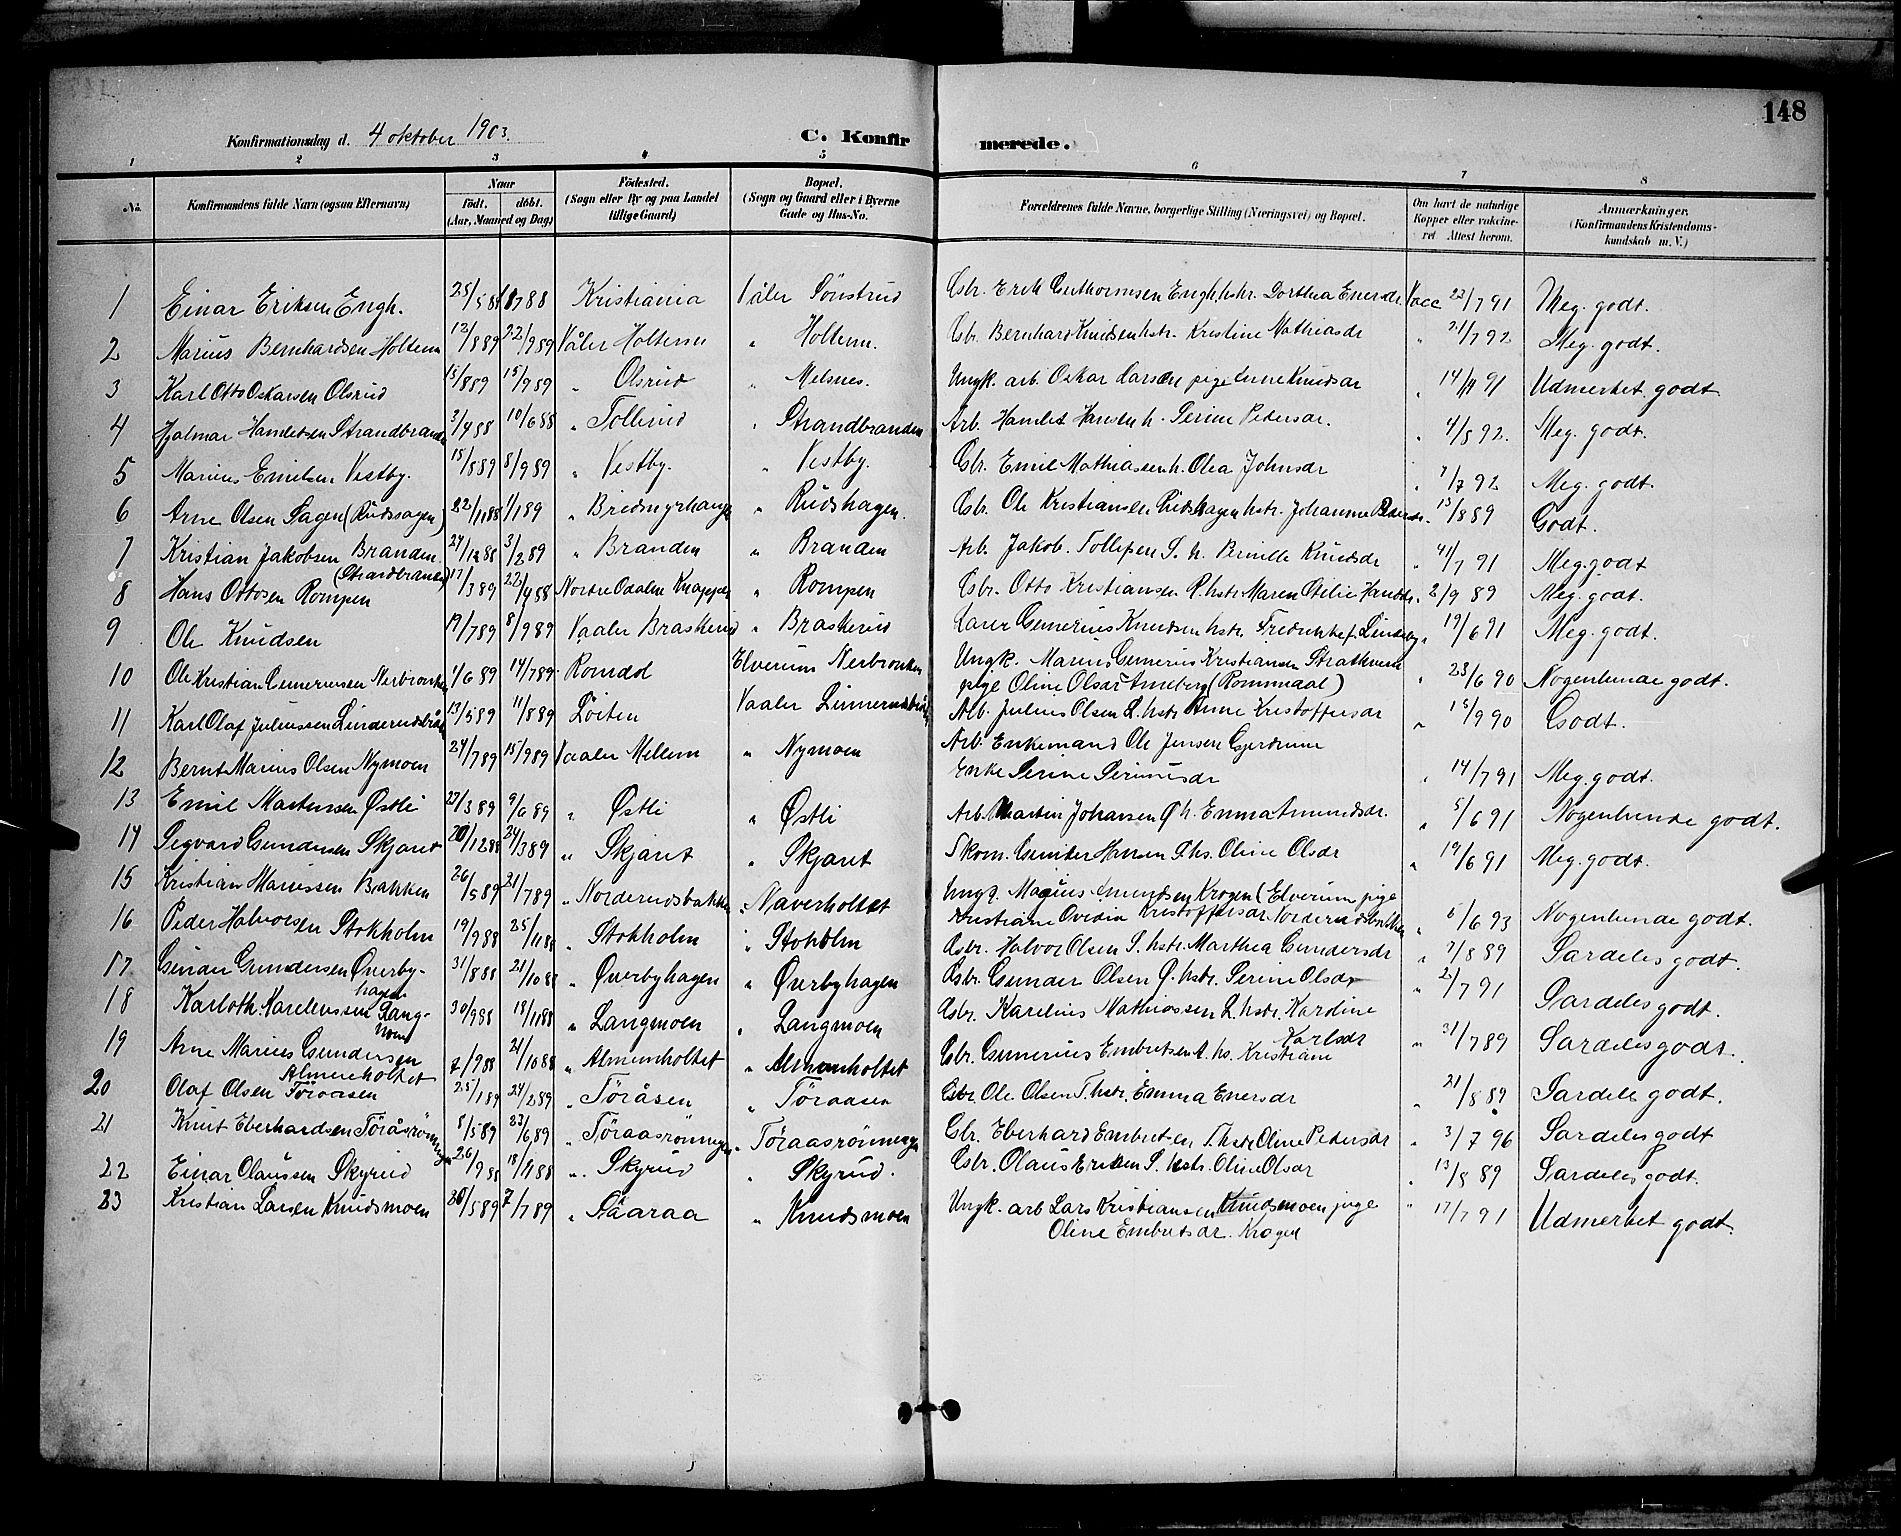 148
Konfirmationsdag d. 4 oktober 1903.
C. Konfirmerede.
1 2 3 4 5 6 7 8
No.
Konfirmandens fulde Navn (ogsaa Efternavn)
Naar
födt. döbt.
(Aar, Maaned og Dag)
Födested.
(Sogn eller By og paa Landet
tillige Gaard)
Bopæl.
(Sogn og Gaard eller i Byerne
Gade og Hus-No.
Forældrenes fulde Navne, borgerlige Stilling (Næringsvei) og Bopæl.
Om havt de naturlige
Kopper eller vakcine-
ret Attest herom.
Anmærkninger.
(Konfirmandens Kristendoms-
kundskab m. V.)
1 Einar Eriksen Engh. 25/5 88 Kristiania Våler Sönstrud Gbr. Erik Guthormsen Engh, hstr. Dorthea Enersdr. Vacc 22/7 91 Meg. godt.
2 Marius Bernhardsen Holtem 12/8 89 22/9 89 Våler Holtem " Holtem. Gbr. Bernhard Knudsen hstr Kristine Mathiasdr " 21/7 92 Meg. godt.
3 Karl Otto Oskarsen Olsrud 15/8 89 15/9 89 " Olsrud " Melsnes. Ungk. arb. Oskar Larsen pige Knudsdr " 91 Udmerket godt
4 Hjalmar Hamletsen Strandbranden 2/4 88 10/6 88 " Tollerud " Strandbranden Arb. Hamlet Hansen h. Serine Pedersdr. " 4/8 92. Meg. godt.
5 Marius Emilsen Vestby. 15/8 89 8/9 89 " Vestby. " Vestby. Gbr. Emil Mathiassen h. Olea Johnsdr " 7/7 92 Meg. godt.
6 Arne Olsen Sagen (Rudssagen) 22/11 88 1/1 89 " " Rudshagen. Gbr. Ole Kristiansen Rudshagen hstr. Johanne " 15/8 89 Godt.
7 Kristian Jakobsen Branden 24/12 88 3/2 89 " Branden " Branden Arb. Jakob Tollefsen S. h. Knudsdr " 7 91 Meg. godt
(Strandbranden)
8 Hans Ottosen Rompen 17/3 89 22/4 88 Nordre Odalen Knappen " Rompen Gbr. Otto Kristiansen R. hstr Maren Otelie Hansdr. " 2/9 89 Meg. godt.
9 Ole Knudsen 19/7 89 8/9 89 Vaaler Braskerud " Braskerud Gunerius Knudsen hstr. " 19/6 91 Meg. godt.
10 Ole Kristian Gunerussen Nerbronken 1/6 89 14/7 89 Romdol Elverum Nerbronken Ungk. Marius Gunerius Kristiansen
pige Oline Olsdr Arneberg (Rommaal) " 23/6 90 Nogenlunde godt.
11 Karl Olaf Juliussen Linderudsbråten 13/5 89 11/8 89 Löiten Vaaler Arb. Julius Olsen L. hstr Anne Kristoffersdr " 15/9 90 Godt.
12 Bernt Marius Olsen Nymoen 24/7 89 15/9 89 Vaaler Mellem " Nymoen Arb. Enkemand Ole Jensen
Enke Serine " 14/7 91 Meg. godt.
13 Emil Martinsen Østli 23/3 89 9/6 89 " Østli " Østli Arb. Martin Johansen Ø h. Emma Amundsdr. " 5/6 91 Nogenlunde godt.
14 Segvard Gundersen Skjæret 20/12 88 24/3 89 " Skjæret " Skjæret Skom. Gunder Hansen S. hs. Oline Olsdr " 19/6 91 Meg. godt.
15 Kristian Mariussen Bakken 26/5 89 21/7 89 " Norderudsbakken " Naverholtet Ungk. Marius Amundsen Krogen (Elverum pige
Kristiane Ovidia Kristoffersdr. Norderudsbakken " 6/6 93 Nogenlunde godt.
16 Peder Halvorsen Stokholm 19/9 88 25/11 88 " Stokholm " Stokholm Gbr. Halvor Olsen S. hstr. Marthea Gundersdr " 7/8 89 Særdeles godt.
17 Gunder Gundersen Øverby- 31/8 88 21/10 88 " Øverbyhagen " Øverbyhagen Gbr. Gunder Olsen Ø. hstr. Serine Olsdr " 2/7 91 Særdeles godt.
hagen
18 Karloth Kareliussen Lang- 30/9 88 18/11 88 " Langmoen " Langmoen Gbr. Karelius Mathiassen L. hstr. Kardine
moen Karlsdr
19 Arne Marius Gundersen 7/9 88 21/10 88 " Almenholtet " Almenholtet Gbr. Gunerius Embretsen A. hs. Kristiane " 31/7 89 Særdeles godt.
Almenholtet
20 Olaf Olsen Töraasen 25/1 89 24/2 89 " Töråsen " Töraasen Gbr. Ole Olsen T. hstr. Emma Enersdr " 21/8 89 Særdeles godt.
21 Knut Eberhardsen Töråsrönningen 8/5 89 23/6 89 " Töraasrönningen " Töraasrönningen Gbr. Eberhard Embretsen T. hstr Oline Pedersdr " 3/7 96 Særdeles godt
22 Einar Olaussen Skyrud 26/9 88 18/11 88 " Skyrud " Skyrud. Gbr. Olaus Eriksen S. hstr. Oline Olsdr " 13/8 89 Særdeles godt.
23 Kristian Larsen Knudsmoen 20/5 89 7/7 89 " " Knudsmoen Ungk. arb Lars Kristiansen Knudsmoen pige
Oline Embretsdr. Krogen " 17/7 91 Udmerket godt.